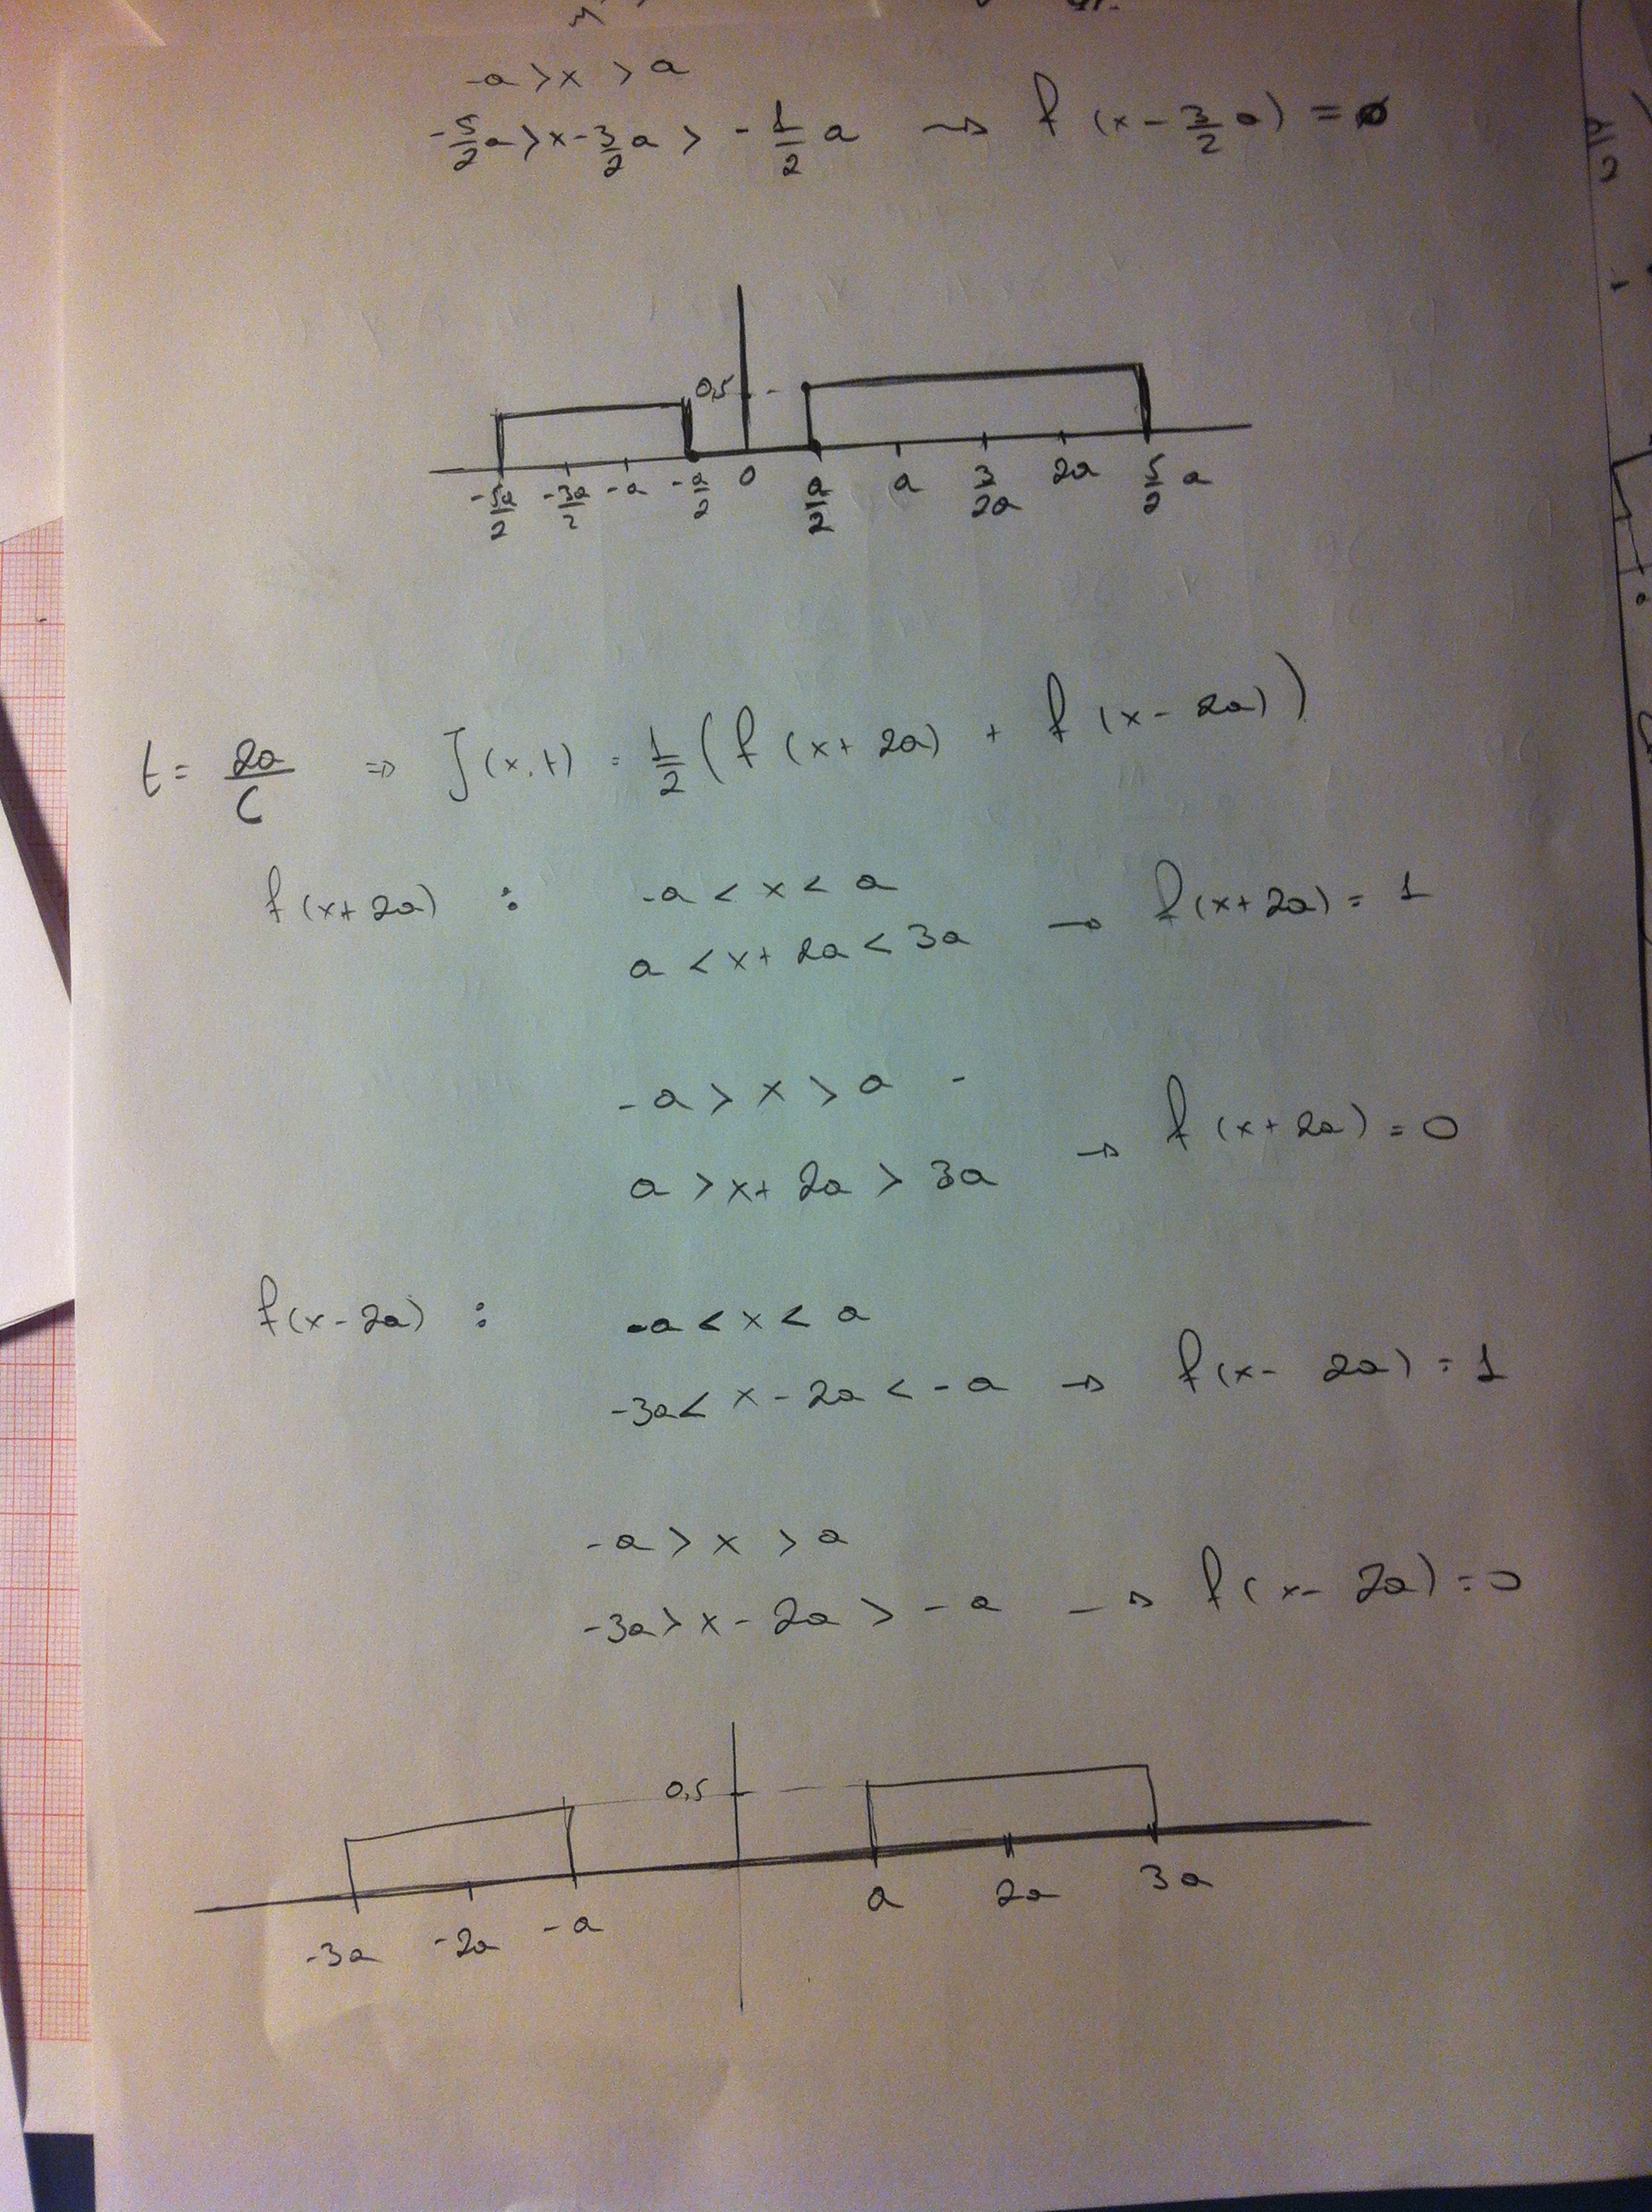 -a > x > a
-5/2 a > x - 3/2 a > -1/2 a ⇝ f (x - 3/2 a) = 0
0,5
-5a/2 -3a/2 -a -a/2 0 a/2 a 3/2a 2a 5/2 a
t = 2a/C ⇒ ʃ(x,t) = 1/2 (f (x+2a) + f (x-2a))
f(x+2a) : -a < x < a
a < x+2a < 3a → f(x+2a) = 1
-a > x > a -
a > x+2a > 3a → f(x+2a) = 0
f(x-2a) : -a < x < a
-3a < x-2a < -a → f(x-2a) = 1
-a > x > a
-3a > x-2a > -a → f(x-2a) = 0
0,5
-3a -2a -a a 2a 3a